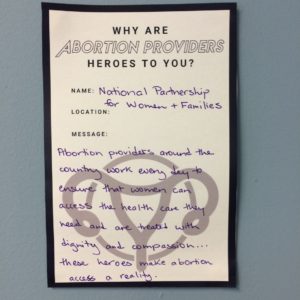 WHY ARE
ABORTION PROVIDERS
HEROES TO YOU?
NAME: National Partnership
for Women + Families
LOCATION:
MESSAGE:
Abortion providers around the
country work every day to
ensure that women can
access the health care they
need and are treated with
dignity and compassion...
these heroes make abortion
access a reality.